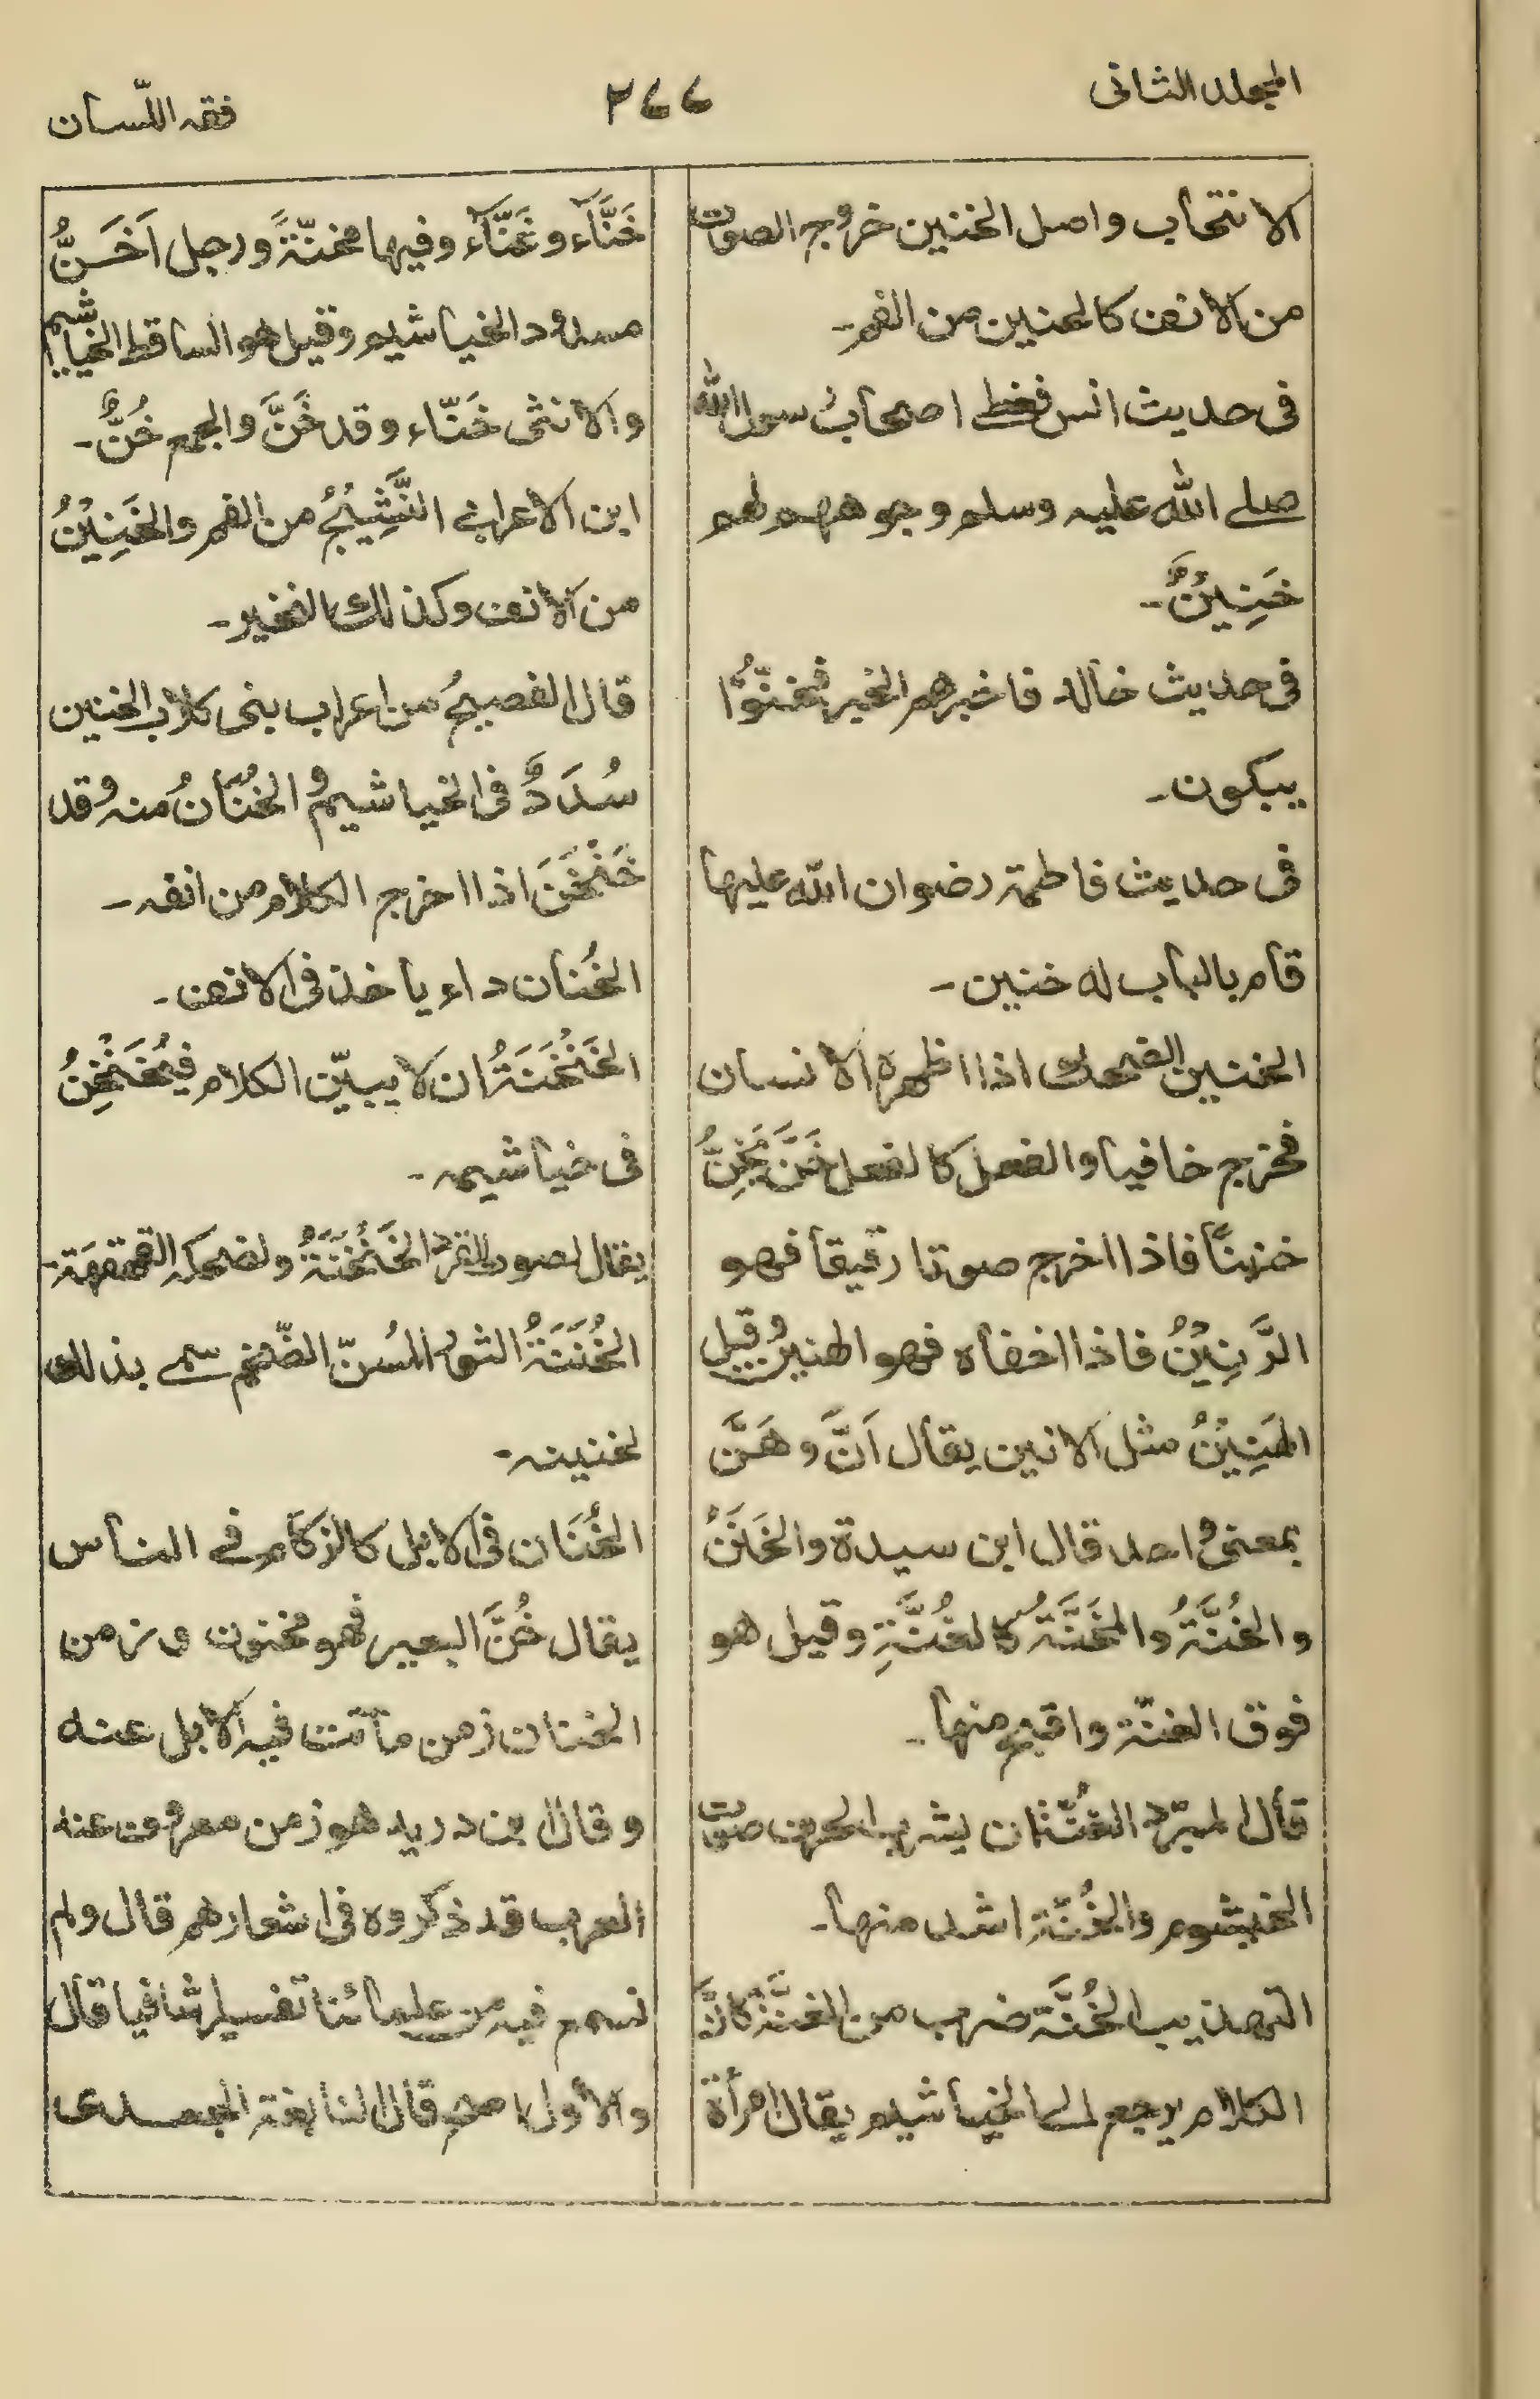 المجلد الثانى
٢٧٧
فقه اللّسان
الانتحاب واصل الخنين خروج الصوت
من الانف كالحنين من الفم ـ
فى حديث انس فغطے اصحاب رسول الله
صلے الله عليه وسلم وجوههم لهم
خَنِينٌ ـ
فى حديث خالد فاخبرهم الخبر فخنّوا
يبكون ـ
فى حديث فاطمة رضوان الله عليها
قام بالباب له خنين ـ
الخنين الضحك اذا اظهره الانسان
فخرج خافيا والفعل كالفعل خَنَّ يَخِنُّ
خنينًا فاذا اخرج صوتا رقيقا فهو
الرَّنِيْنُ فاذا اخفاه فهو الهنين وقيل
الهَنِيْنُ مثل الانين يقال اَنَّ وهَنَّ
بمعنى واحد قال ابن سيدة والخَنَنُ
والخُنَّةُ والمَخَنَّةُ كالغُنَّةِ وقيل هو
فوق الغنّة واقبح منها ـ
قال المبرّد الغُنّة ان يشرب الحرف صوت
الخيشوم والخُنّة اشد منها ـ
التهذيب الخُنَّة ضرب من الغنَّة كانَّ
الكلام يرجع الى الخياشيم يقال امرأة
خَنَّآء وغَنَّآء وفيها مخنّةً ورجل اَخَنُّ
مسدود الخياشيم وقيل هو الساقط الخياشيم
والانثى خَنّاء وقد خَنَّ والجمع خُنٌّ ـ
ابن الاعرابے النَّشِيْجُ من الفم والخَنِيْنُ
من الانف وكذلك النخير ـ
قال الفصيح من اعراب بنى كلاب الخنين
سُدَدٌ فى الخياشيم والخُنَانُ منه وقد
خَنْخَنَ اذا اخرج الكلام من انفه ـ
الخُنان داء ياخذ فى الانف ـ
الخَنْخَنَةُ ان لا يبيّن الكلام فيُخَنْخِنُ
فى خياشيمه ـ
يقال لصوت القرد الخَنْخَنَةُ ولضحكه القهقهة ـ
الخُنَنَةُ الثور المُسنّ الضّخم سمے بذلك
لخنينه ـ
الخُنَان فى الابل كالزكام فے الناس
يقال خُنَّ البعير فهو مخنون وزمن
الخنان زمن ماتت فيه الابل عنه
وقال ابن دريد هو زمن معروف عند
العرب قد ذكروه فى اشعارهم قال ولم
نسمع فيه من علمائنا تفسيرا شافيا قال
والاول اصح قال النابغة الجعدى